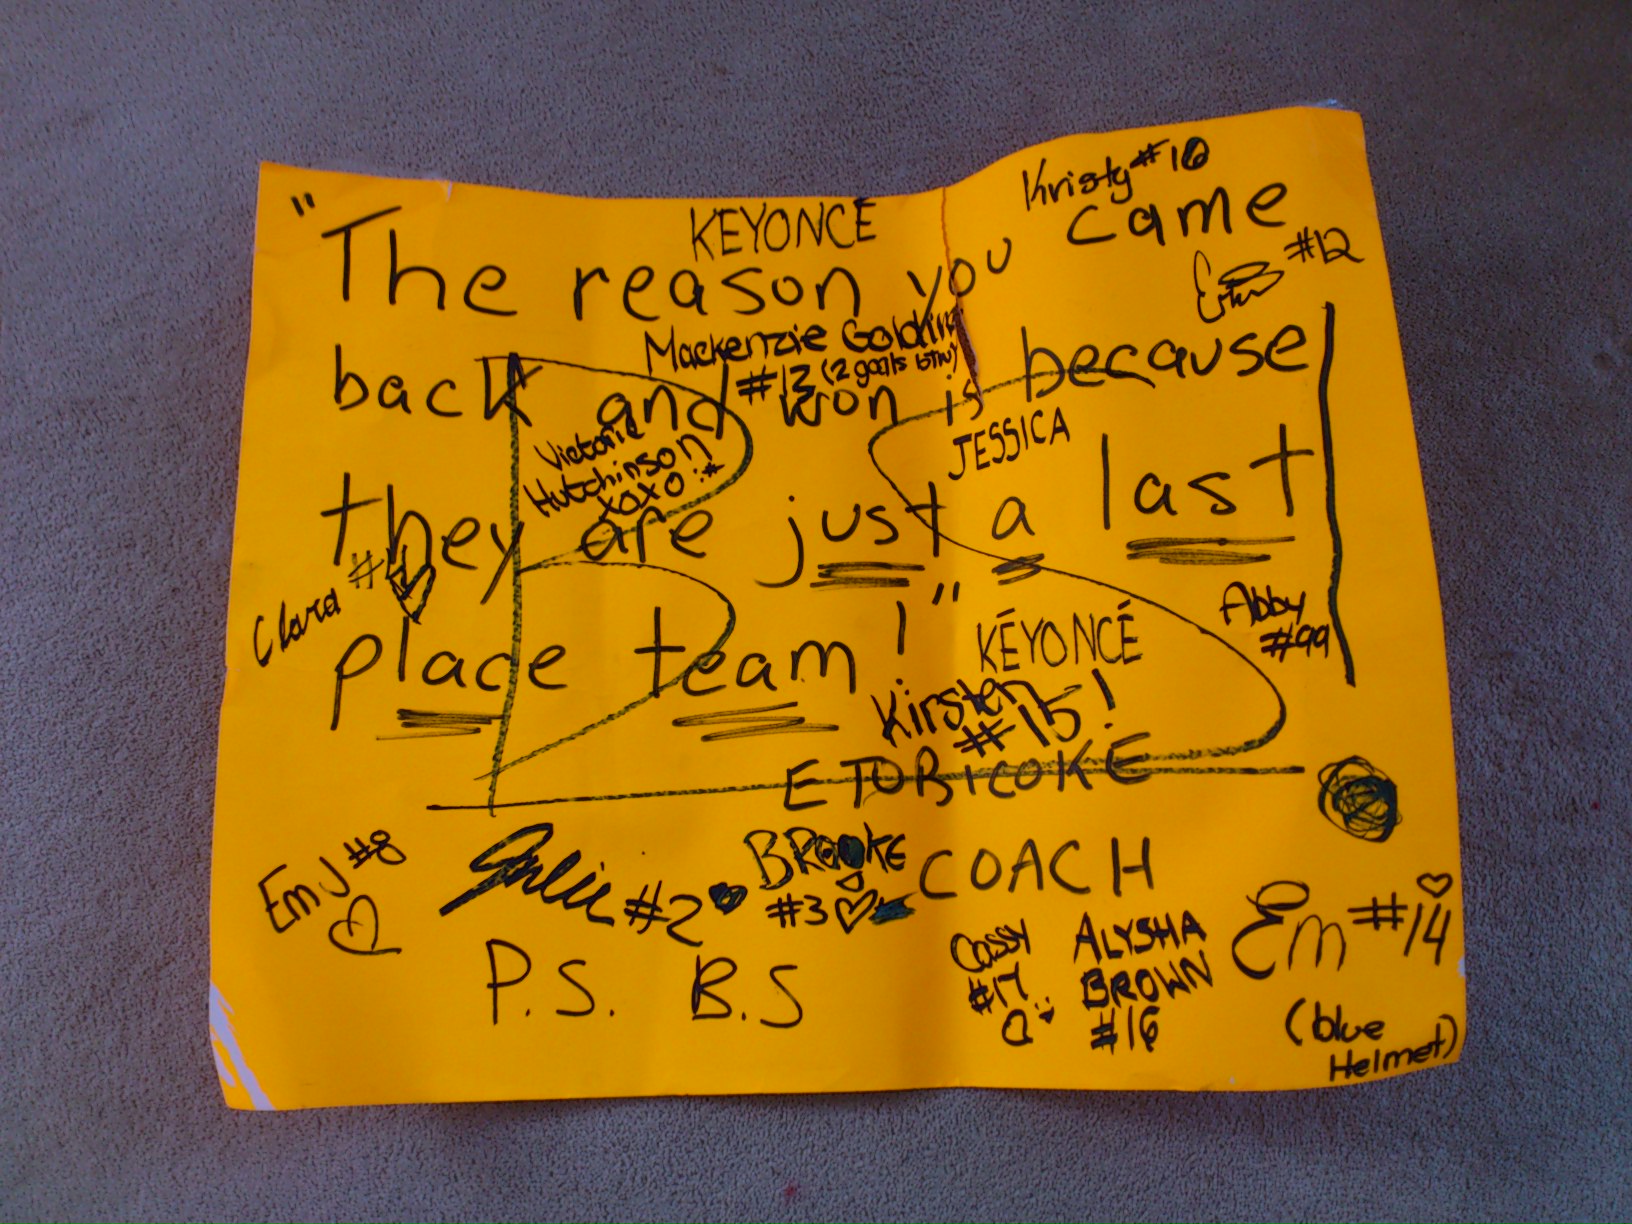 Kristy #10
KEYONCE
"The reason you came
#12
Mackenzie
#13 (2 goals btw)
back and won is because
Victoria
Hutchinson
xoxo :*
JESSICA
they are just a last
Clara #
Abby
#99
place team!"
KÉYONCÉ
Kirsten
#15!
ETOBICOKE
EmJ #8
Julie #2
BROOKE
#3
COACH
Em #14
(blue
Helmet)
Cassy
#17
ALYSHA
BROWN
#16
P.S. B.S